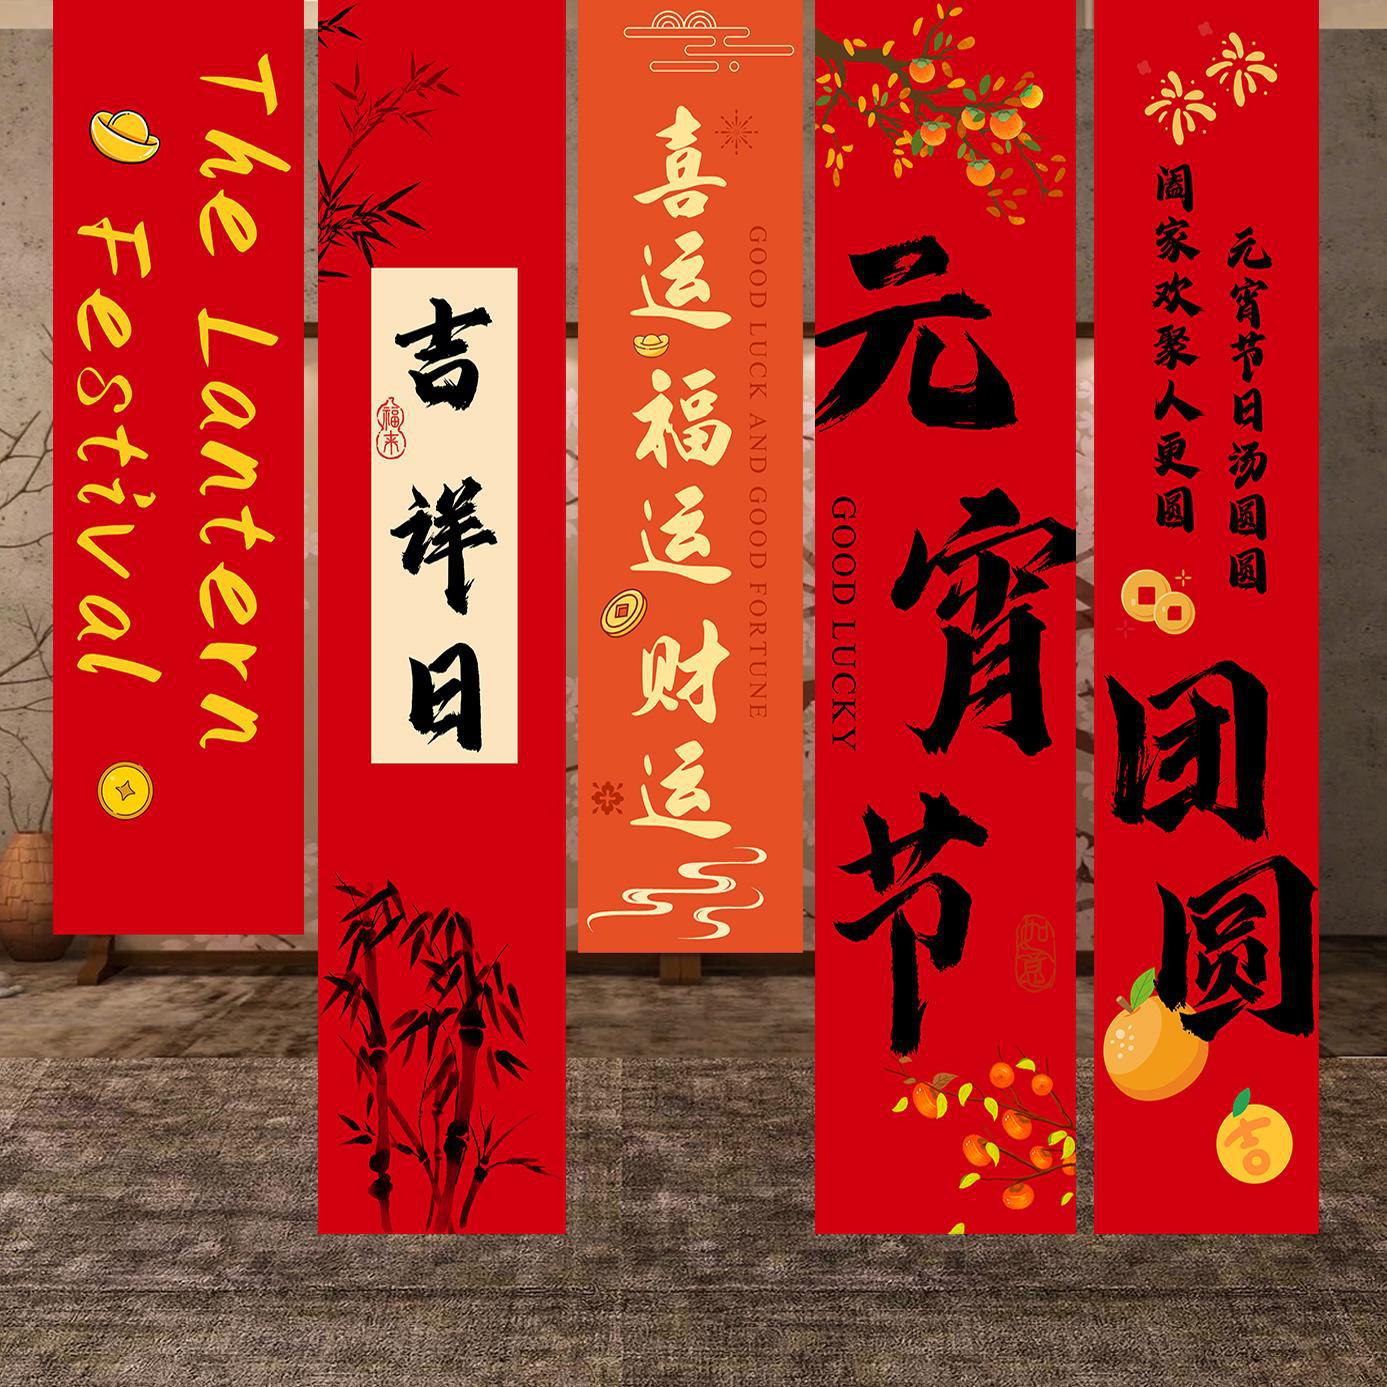 The Lantern
Festival
吉祥日
福来
喜运福运财运
GOOD LUCK AND GOOD FORTUNE
元宵节
GOOD LUCKY
如意
元宵节日汤圆圆
阖家欢聚人更圆
团圆
吉